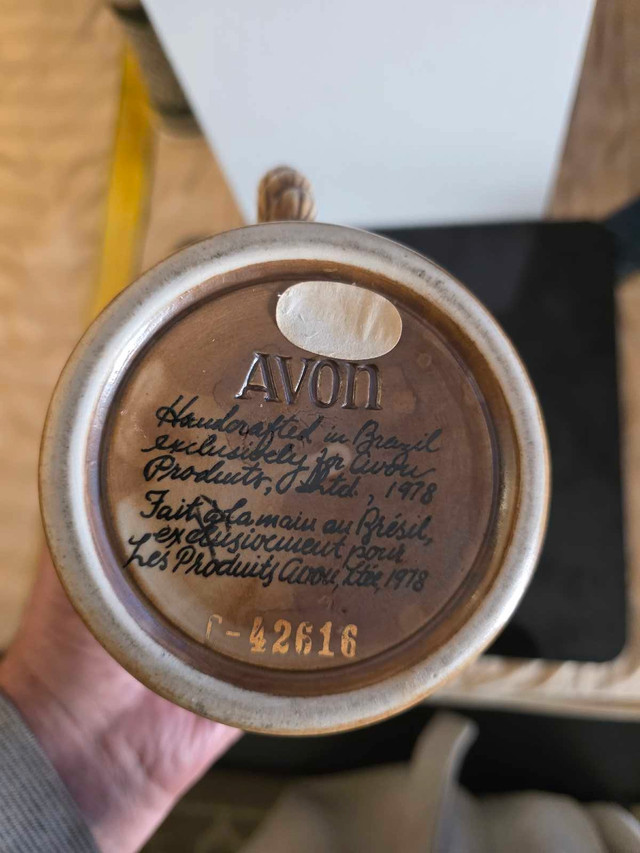 AVON
Handcrafted in Brazil
exclusively for Avon
Products, Ltd., 1978
Fait à la main au Brésil,
exclusivement pour
Les Produits Avon, Ltée, 1978
C-42616